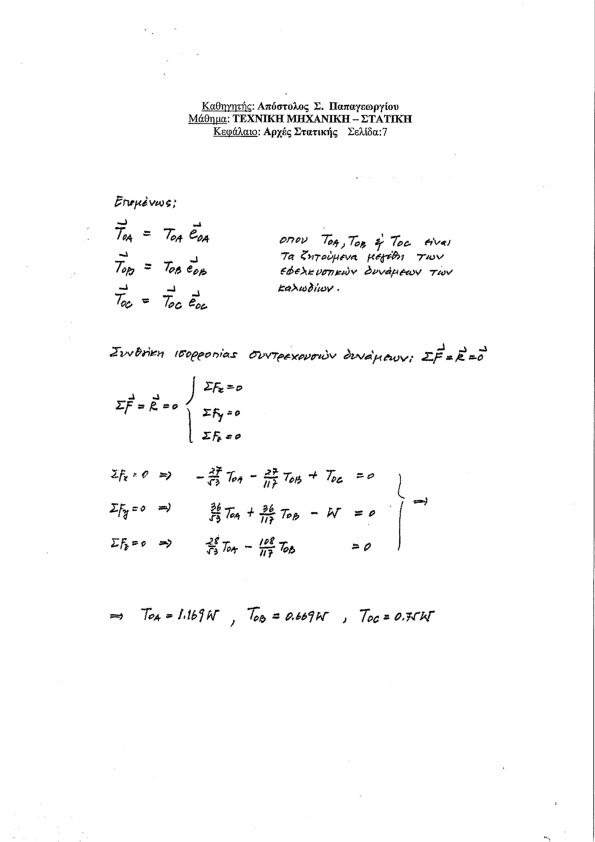 Καθηγητής: Απόστολος Σ. Παπαγεωργίου
Μάθημα: ΤΕΧΝΙΚΗ ΜΗΧΑΝΙΚΗ – ΣΤΑΤΙΚΗ
Κεφάλαιο: Αρχές Στατικής Σελίδα:7
Επομένως:
T⃗OA = TOA e⃗OA
T⃗OB = TOB e⃗OB
T⃗OC = T⃗OC e⃗OC
οπου TOA, TOB ή TOC είναι
τα ζητούμενα μεγέθη των
εφελκυστικών δυνάμεων των
καλωδίων.
Συνθήκη ισορροπίας συντρεχουσών δυνάμεων: ΣF⃗ = R⃗ = 0⃗
ΣF⃗ = R⃗ = 0 { ΣFx = 0
ΣFy = 0
ΣFz = 0
ΣFx = 0 ⇒ - 27/53 TOA - 27/117 TOB + TOC = 0
ΣFy = 0 ⇒ 36/53 TOA + 36/117 TOB - W = 0 } ⇒
ΣFz = 0 ⇒ 28/53 TOA - 108/117 TOB = 0
⇒ TOA = 1.169W , TOB = 0.669W , TOC = 0.75W